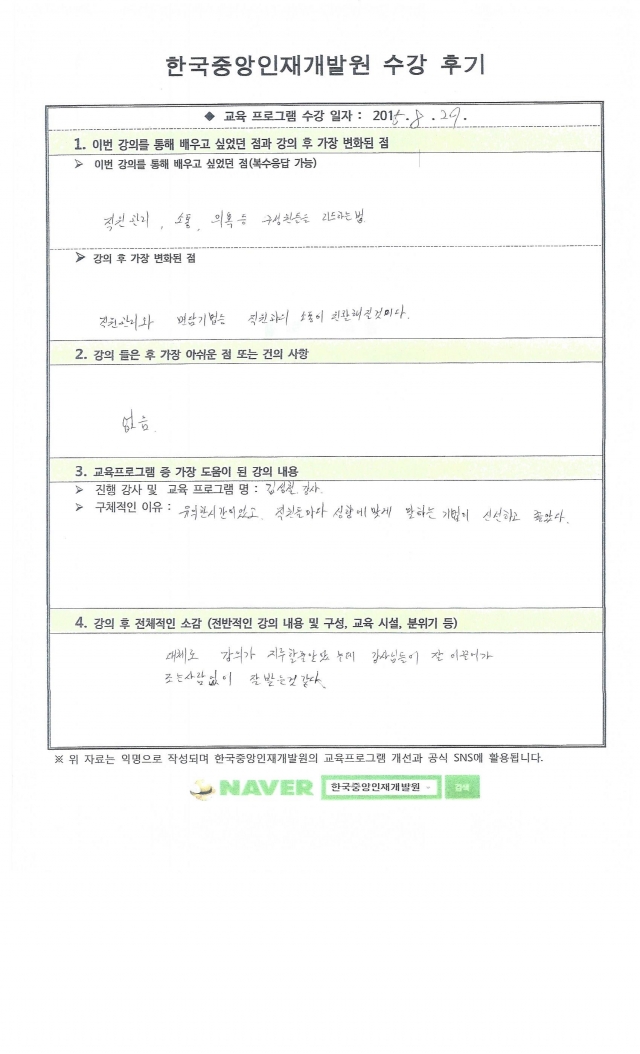 한국중앙인재개발원 수강 후기
◆ 교육 프로그램 수강 일자 : 2015. 8. 29.
1. 이번 강의를 통해 배우고 싶었던 점과 강의 후 가장 변화된 점
➢ 이번 강의를 통해 배우고 싶었던 점(복수응답 가능)
직원관리, 소통, 의욕 등 구성원들을 리드하는법.
➢ 강의 후 가장 변화된 점
직원관리와 면담기법등 직원과의 소통이 원활해질것이다.
2. 강의 들은 후 가장 아쉬운 점 또는 건의 사항
없음.
3. 교육프로그램 중 가장 도움이 된 강의 내용
➢ 진행 강사 및 교육 프로그램 명 : 강사.
➢ 구체적인 이유 : 유익한시간이었고. 직원들마다 상황에 맞게 말하는 기법이 신선하고 좋았다.
4. 강의 후 전체적인 소감 (전반적인 강의 내용 및 구성, 교육 시설, 분위기 등)
대체로 강의가 지루할줄알았는데 강사님들이 잘 이끌어가
조는사람없이 잘 받은것 같다.
※ 위 자료는 익명으로 작성되며 한국중앙인재개발원의 교육프로그램 개선과 공식 SNS에 활용됩니다.
NAVER 한국중앙인재개발원 검색